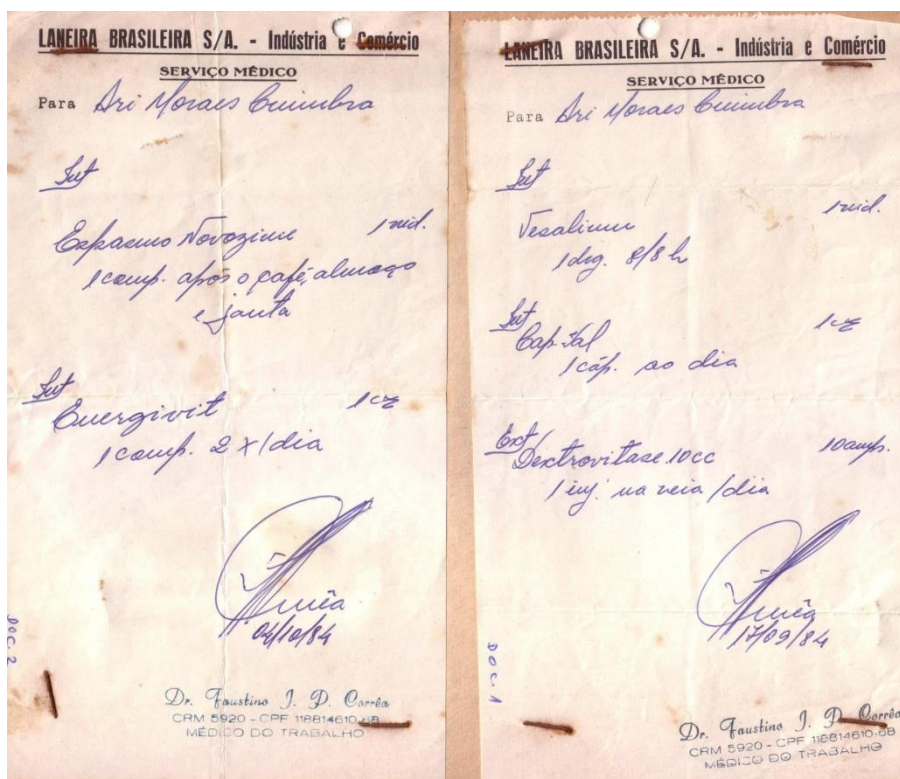 LANEIRA BRASILEIRA S/A. - Indústria e Comércio
SERVIÇO MÉDICO
Para Ari Moraes Cuimbra
Int
Espasmo Novozime 1 vid.
1 comp. após o café, almoço
e janta
Int
Energivit 1 cx
1 comp. 2 x/dia
04/10/84
DOC. 2
Dr. Faustino J. P. Corrêa
CRM 5920 - CPF 118814610-68
MÉDICO DO TRABALHO
LANEIRA BRASILEIRA S/A. - Indústria e Comércio
SERVIÇO MÉDICO
Para Ari Moraes Cuimbra
Int
Vesalium 1 vid.
1 drg. 8/8 h
Int
1 cx
1 cáp. ao dia
Ext
Dextrovitase 10cc 10 amps.
1 inj. na veia /dia
17/09/84
DOC. 1
Dr. Faustino J. P. Corrêa
CRM 5920 - CPF 118814610-68
MÉDICO DO TRABALHO